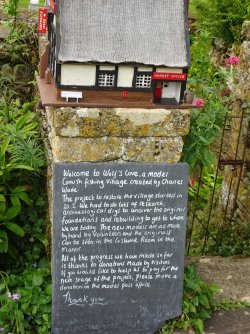 POST OFFICE
Welcome to Wolf's Cove, a model
Cornish fishing village created by Charles
Wade.
The project to restore the village started in
2010. We had to do lots of research,
archaeological digs to uncover the original
foundations and rebuilding to get to where
we are today. The new models are all made
by hand by Volunteers and the originals
can be seen in the Costume Room in the
Manor
All of the progress we have made so far
is thanks to donations made by visitors
If you would like to help us to pay for the
next stage of the project, please make a
donation in the model post office.
Thank you